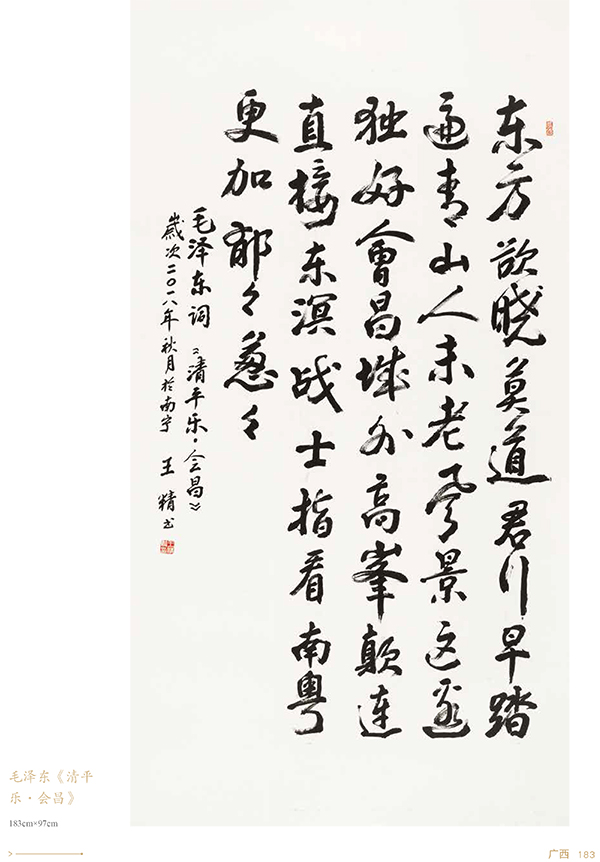 东方欲晓莫道君行早踏
遍青山人未老风景这边
独好會昌城外高峯颠连
直接东溟战士指看南粤
更加郁々葱々
毛泽东词《清平乐·会昌》
歲次二〇一八年秋月於南宁 王精书
毛泽东《清平
乐·会昌》
183cm×97cm
广西 183